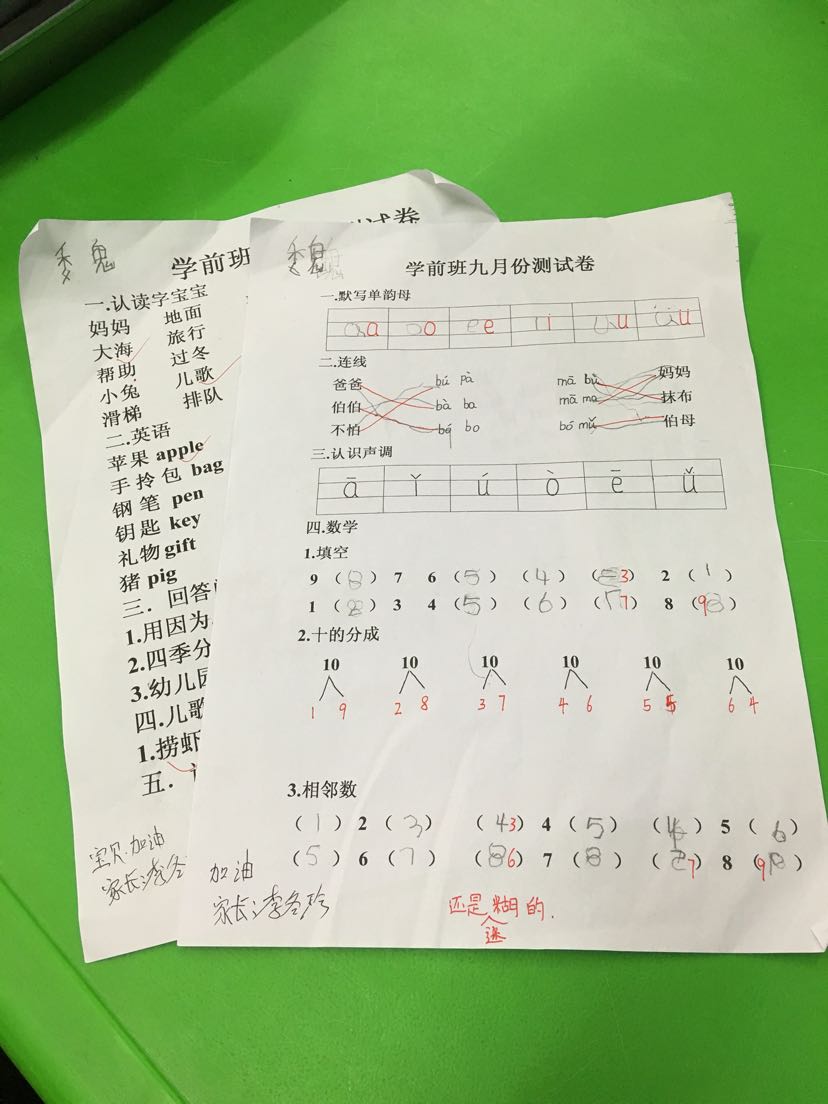 学前班
一.认读字宝宝
妈妈 地面
大海 旅行
帮助 过冬
小兔 儿歌
滑梯 排队
二.英语
苹果 apple
手拎包 bag
钢笔 pen
钥匙 key
礼物 gift
猪 pig
三.回答
1.用因为
2.四季分
3.幼儿园
四.儿歌
1.捞虾
五.
宝贝.加油
家长:李冬
学前班九月份测试卷
一.默写单韵母
a o e i u ü
二.连线
爸爸 bú pà mā bù 妈妈
伯伯 bà ba mā ma 抹布
不怕 bó bo bó mǔ 伯母
三.认识声调
ā ǐ ú ò ē ǚ
四.数学
1.填空
9 (8) 7 6 (5) (4) (3) 2 (1)
1 (2) 3 4 (5) (6) (7) 8 (9)
2.十的分成
10 10 10 10 10 10
1 9 2 8 3 7 4 6 5 5 6 4
3.相邻数
(1) 2 (3) (43) 4 (5) (4) 5 (6)
(5) 6 (7) (86) 7 (8) (7) 8 (9)
加油
家长:李冬玲
还是迷糊的.